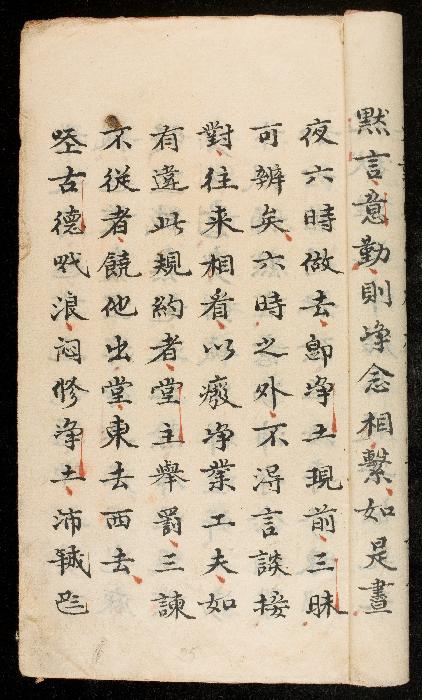 默言意勤則净念相繫如是晝
夜六時做去即净土現前三昧
可辨矣六時之外不得言談接
對往來相看以癈净業工夫如
有違此規約者堂主舉罸三諫
不從者饒他出堂東去西去
古德浪悶修净土沛